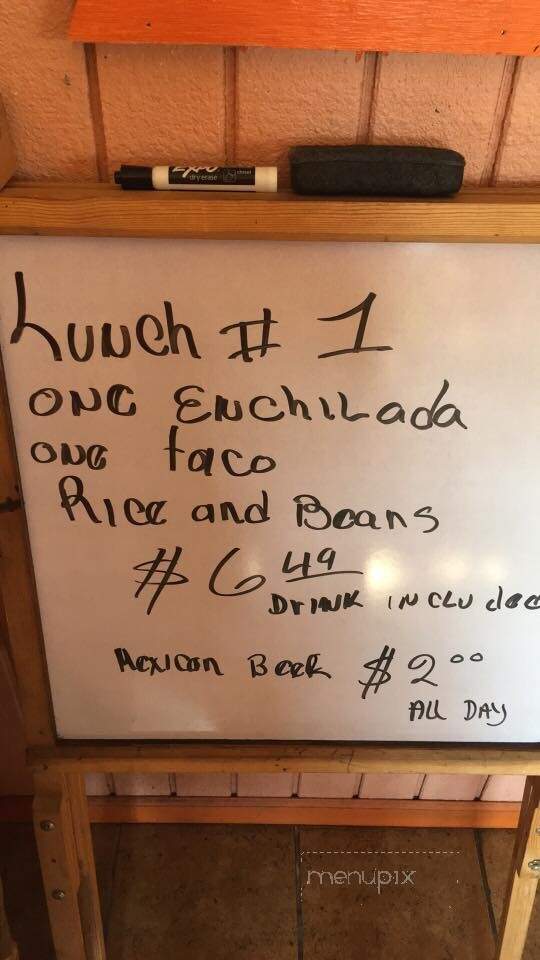 EXPO
dry erase chisel
Lunch # 1
ONE ENCHILada
ONE taco
Rice and Beans
$6 49
Drink INCLUded
Mexican Beer $2 00
ALL DAY
menupix